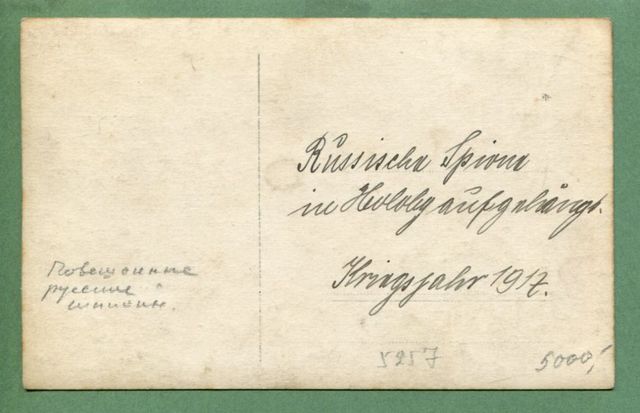 Russische Spione
in Holoby aufgehängt.
Kriegsjahr 1917.
Повешонные
русские
шпионы.
5257
5000,-